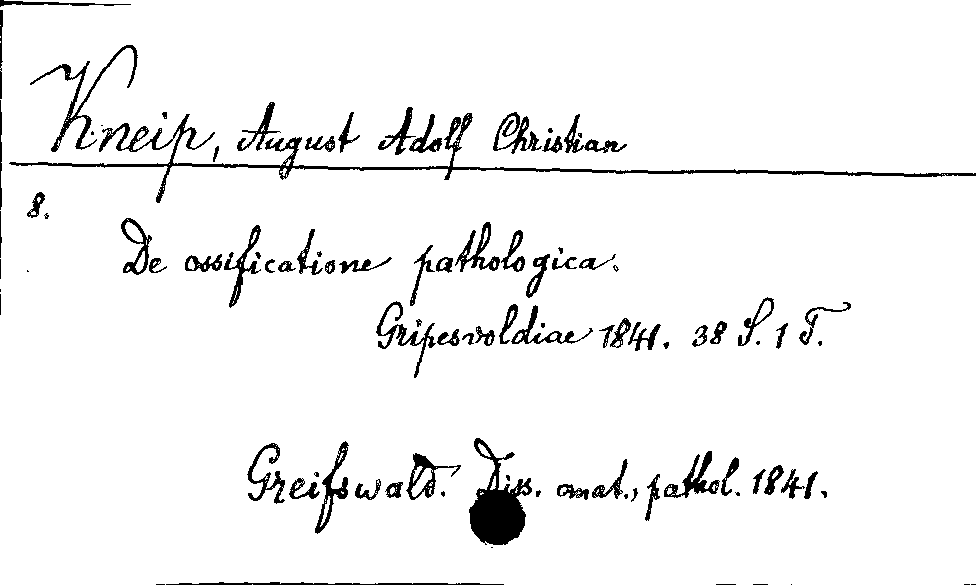 Kneip, August Adolf Christian
8.
De ossificatione pathologica.
Gripesvoldiae 1841. 38 S. 1 T.
Greifswald. Diss. anat., pathol. 1841.